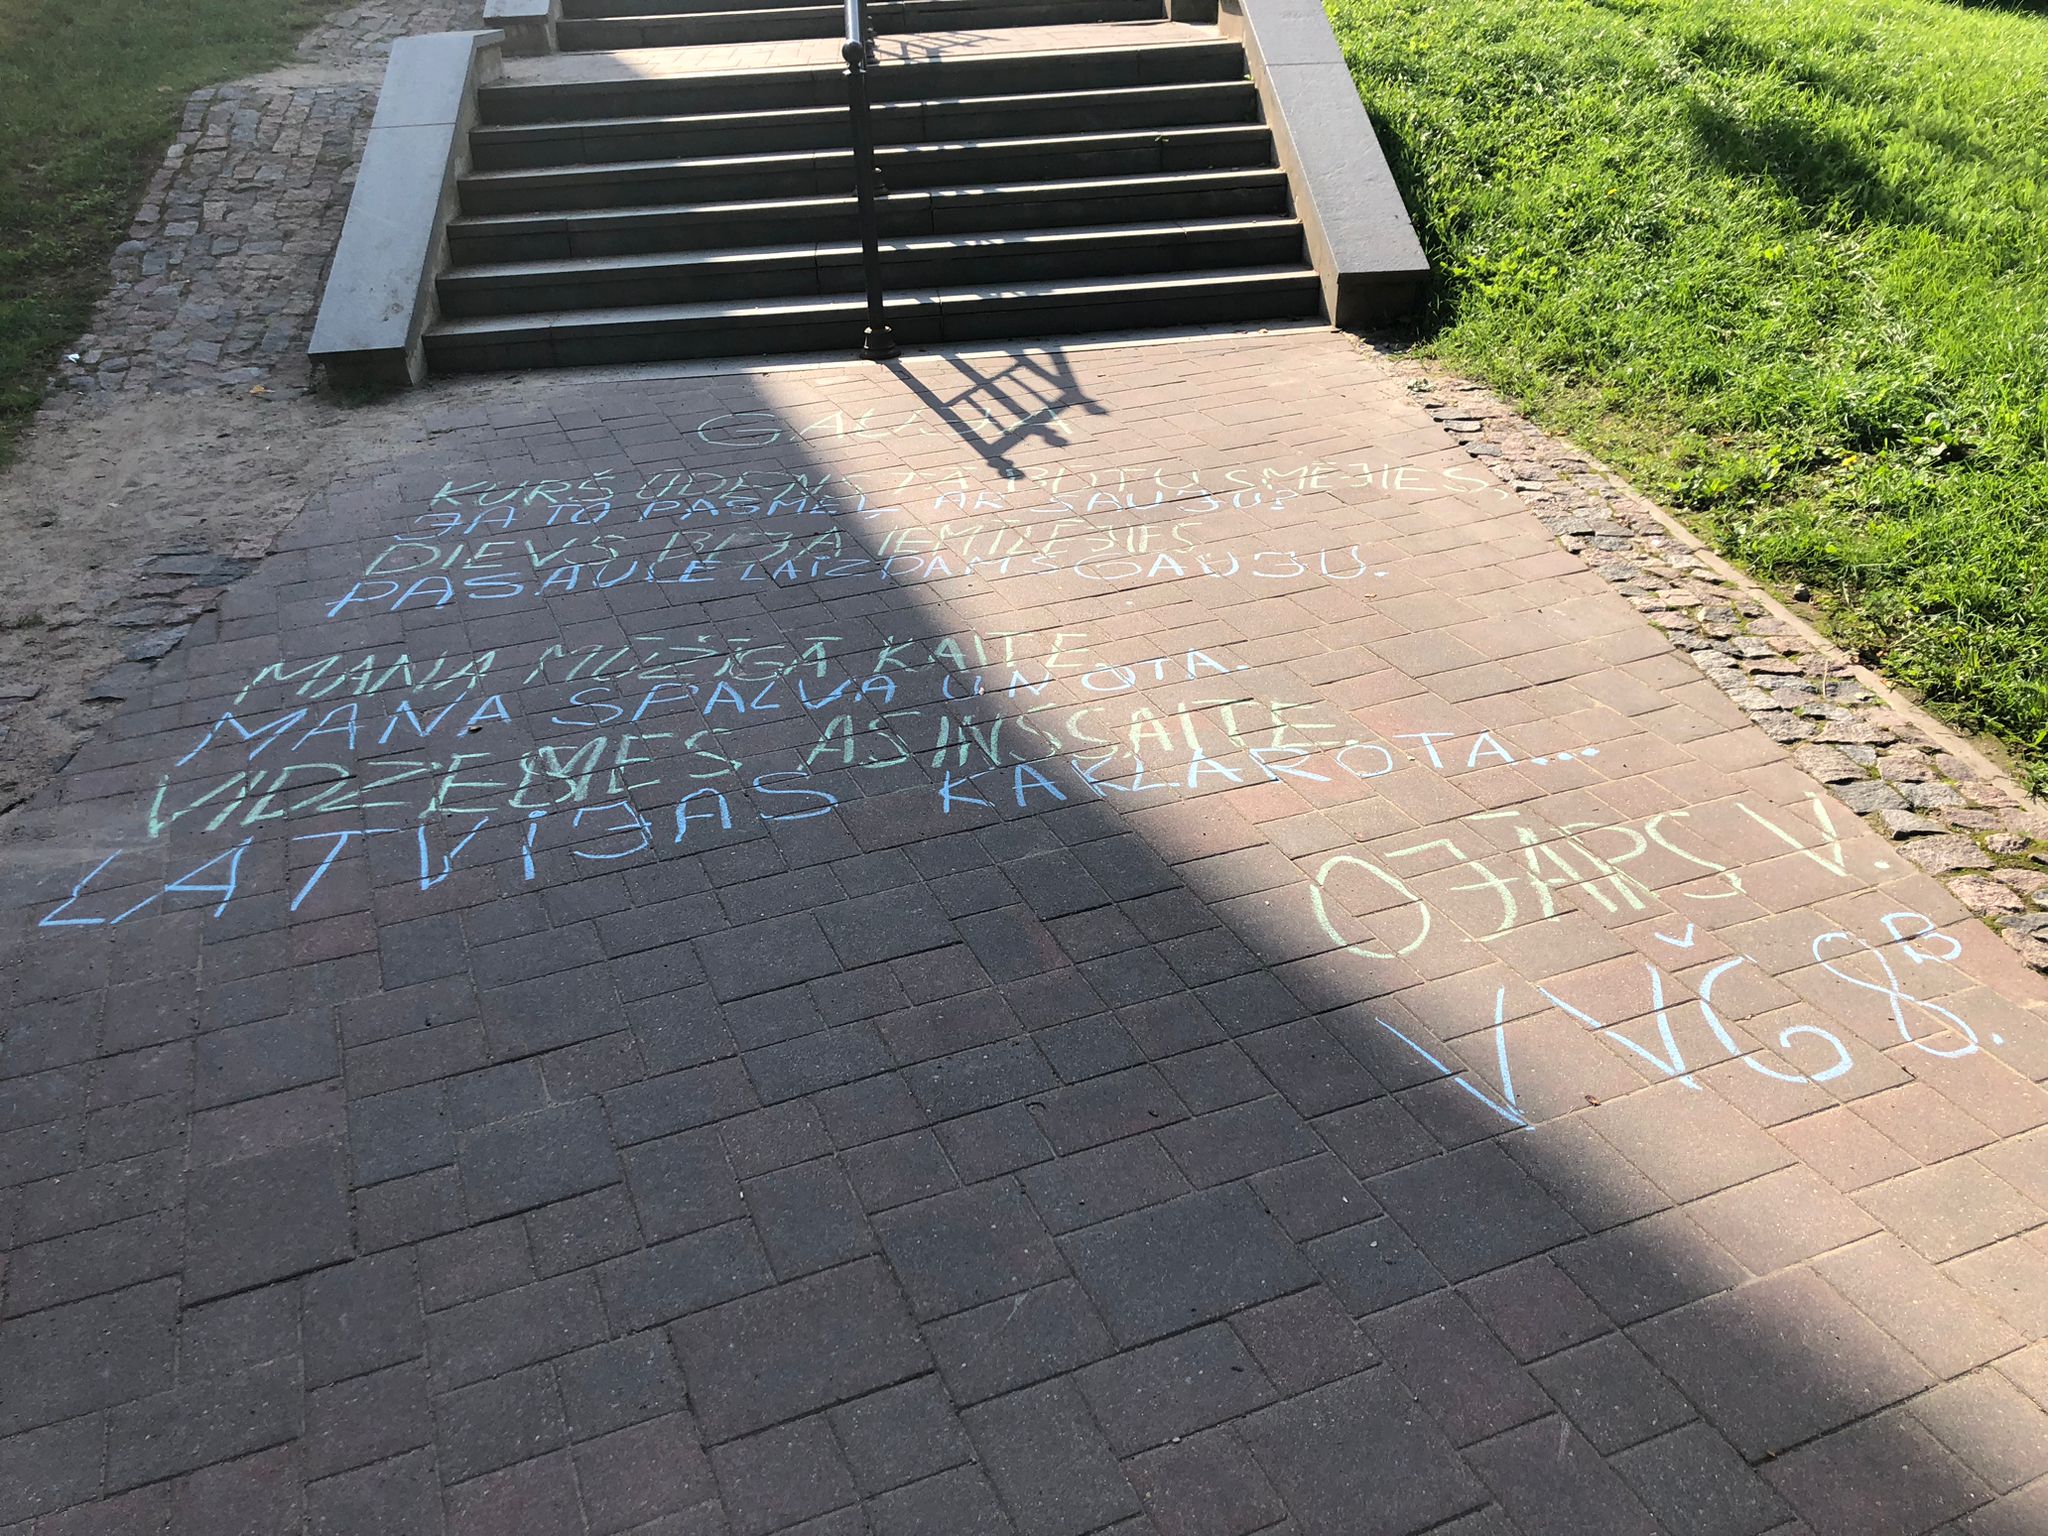 GAUJA
KURŠ ŪDENS TĀ BŪTU SMĒJIES,
JA TO PASMEĻ AR SAUJU?
DIEVS BIJA IEMĪLĒJIES
PASAULE LAIZDAMS GAUJU.
MANA MŪŽĪGĀ KAITE,
MANA SPALVA UN OTA.
VIDZEMES ASINSSAITE,
LATVIJAS KAKLAROTA...
OJĀRS V.
VVĢ 8B.